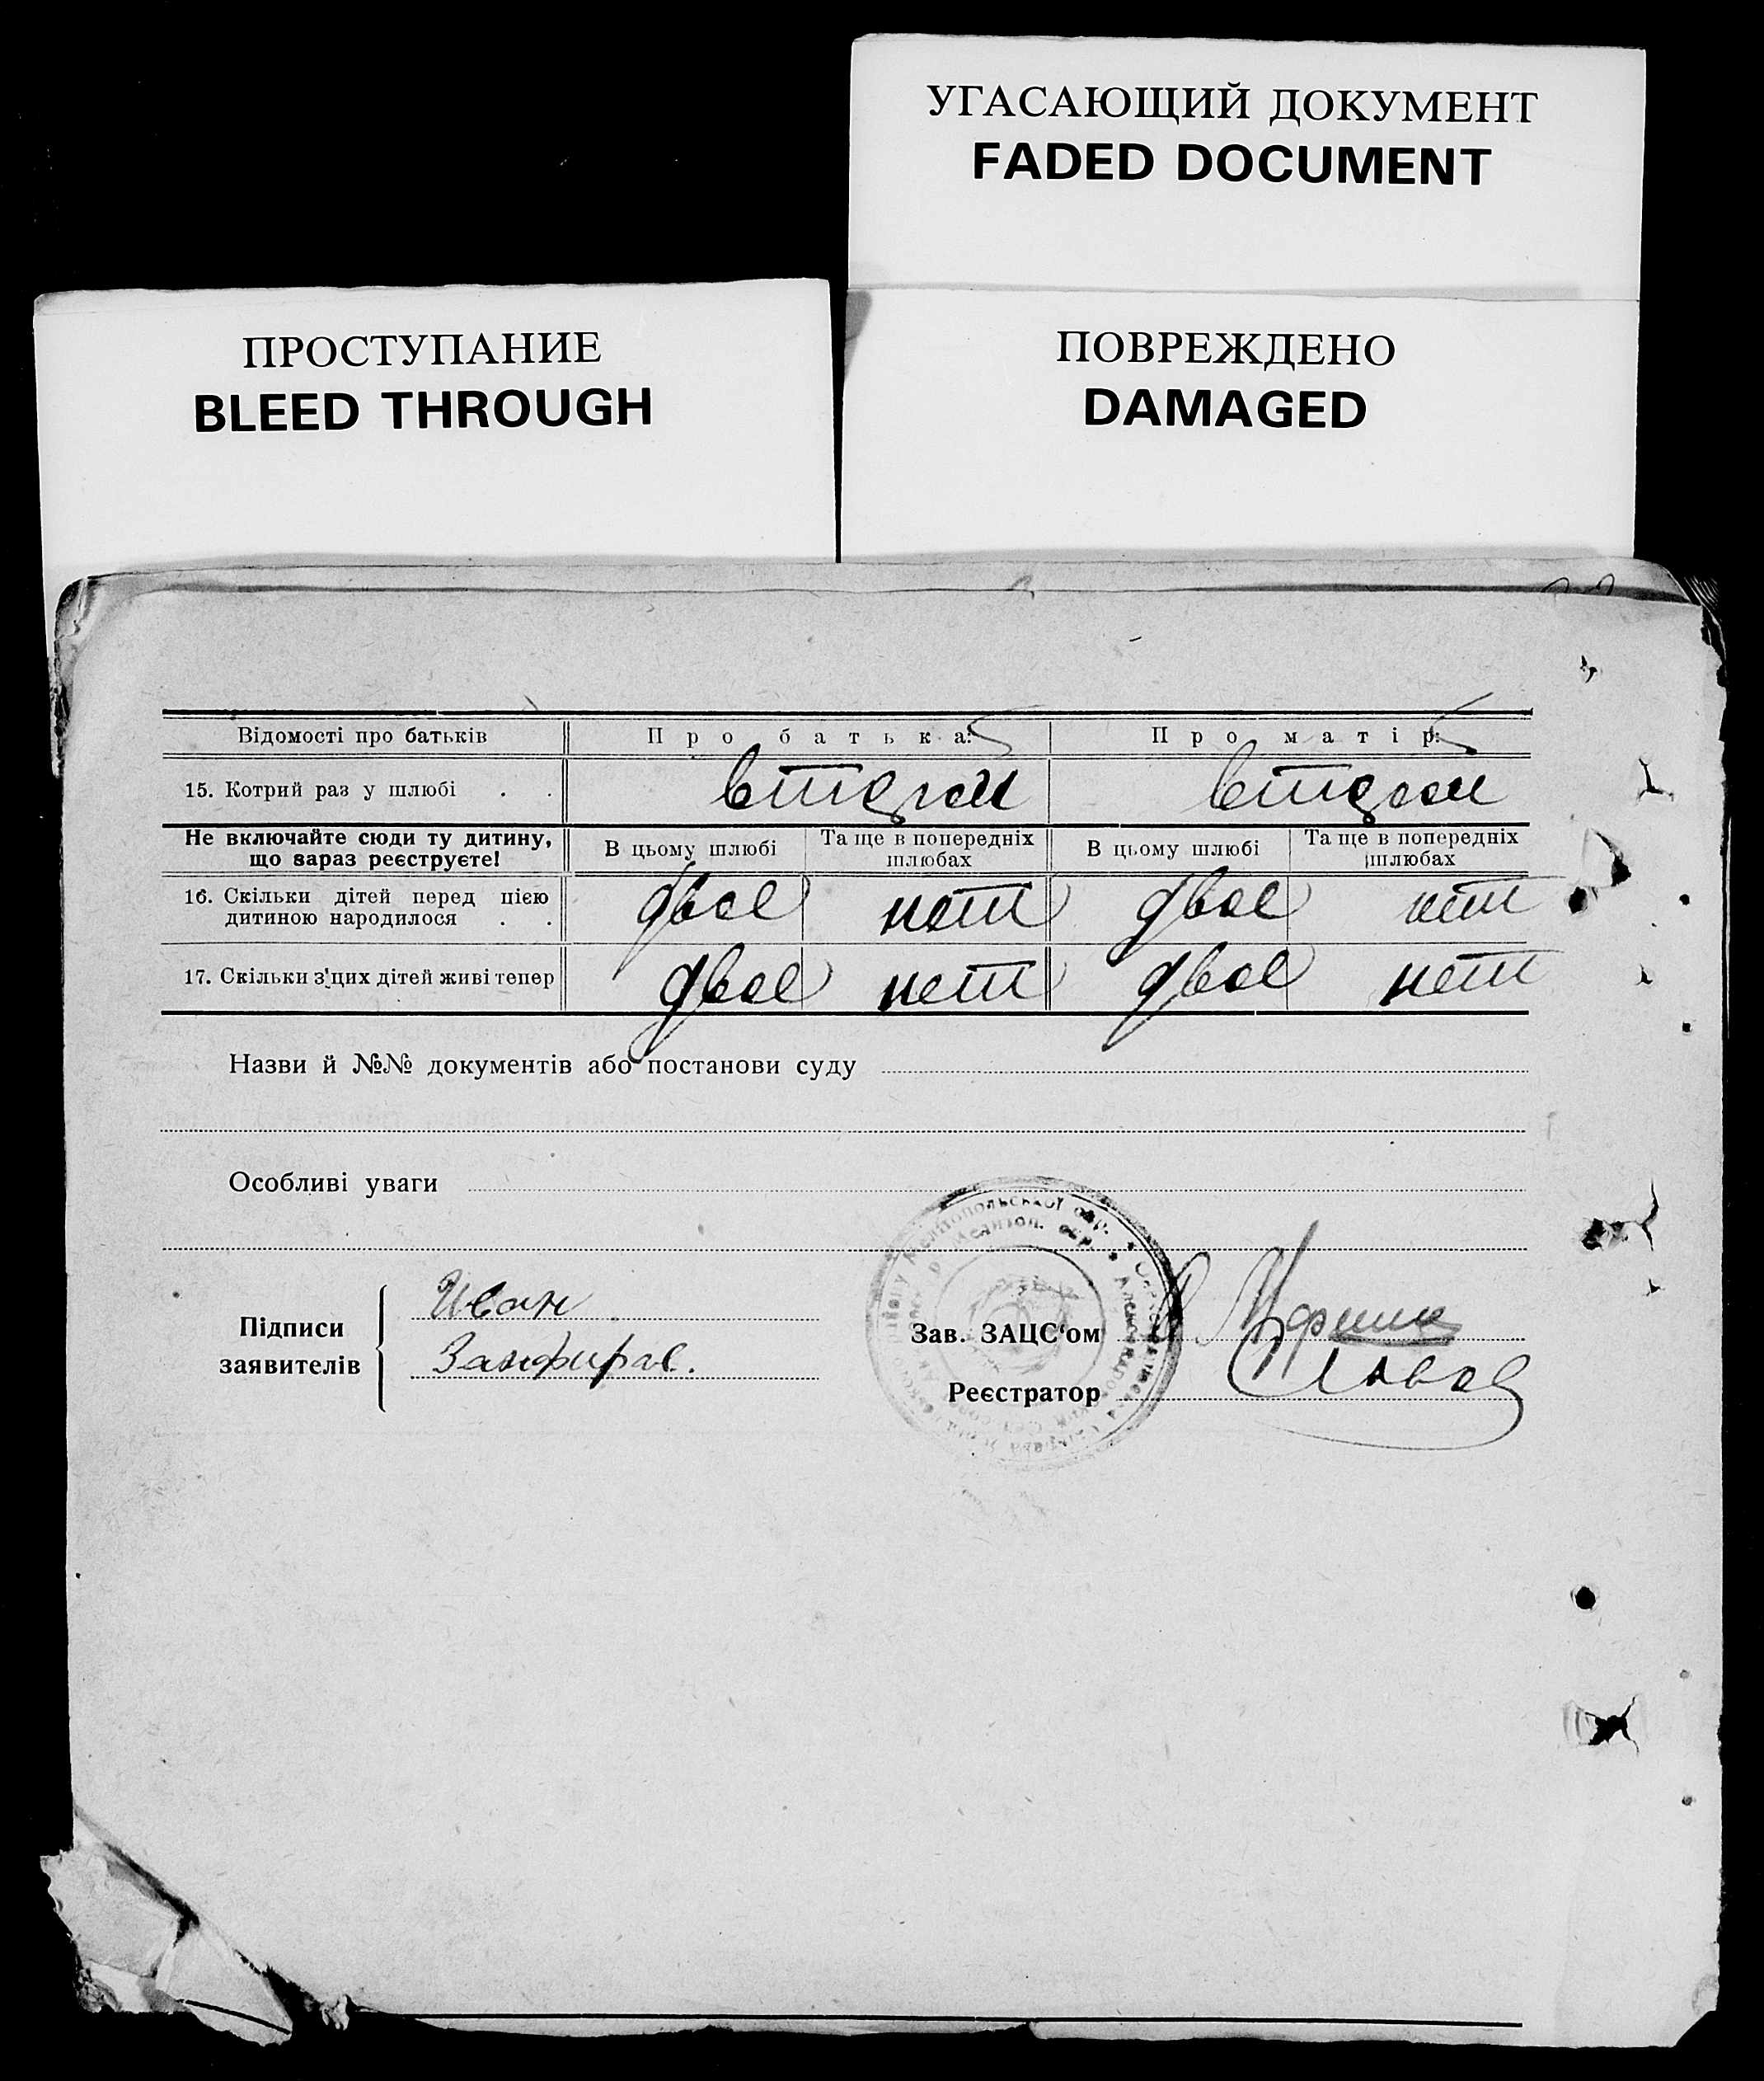 УГАСАЮЩИЙ ДОКУМЕНТ
FADED DOCUMENT
ПРОСТУПАНИЕ
BLEED THROUGH
ПОВРЕЖДЕНО
DAMAGED
Відомості про батьків Про батька: Про матір:
15. Котрий раз у шлюбі . . второй второй
Не включайте сюди ту дитину, що зараз реєструєте!
В цьому шлюбі Та ще в попередніх шлюбах В цьому шлюбі Та ще в попередніх шлюбах
16. Скільки дітей перед цією
дитиною народилося . . двое нет двое нет
17. Скільки з'цих дітей живі тепер двое нет двое нет
Назви й №№ документів або постанови суду
Особливі уваги
Підписи
заявителів
Иван
Занфира
Зав. ЗАЦС'ом
Реєстратор